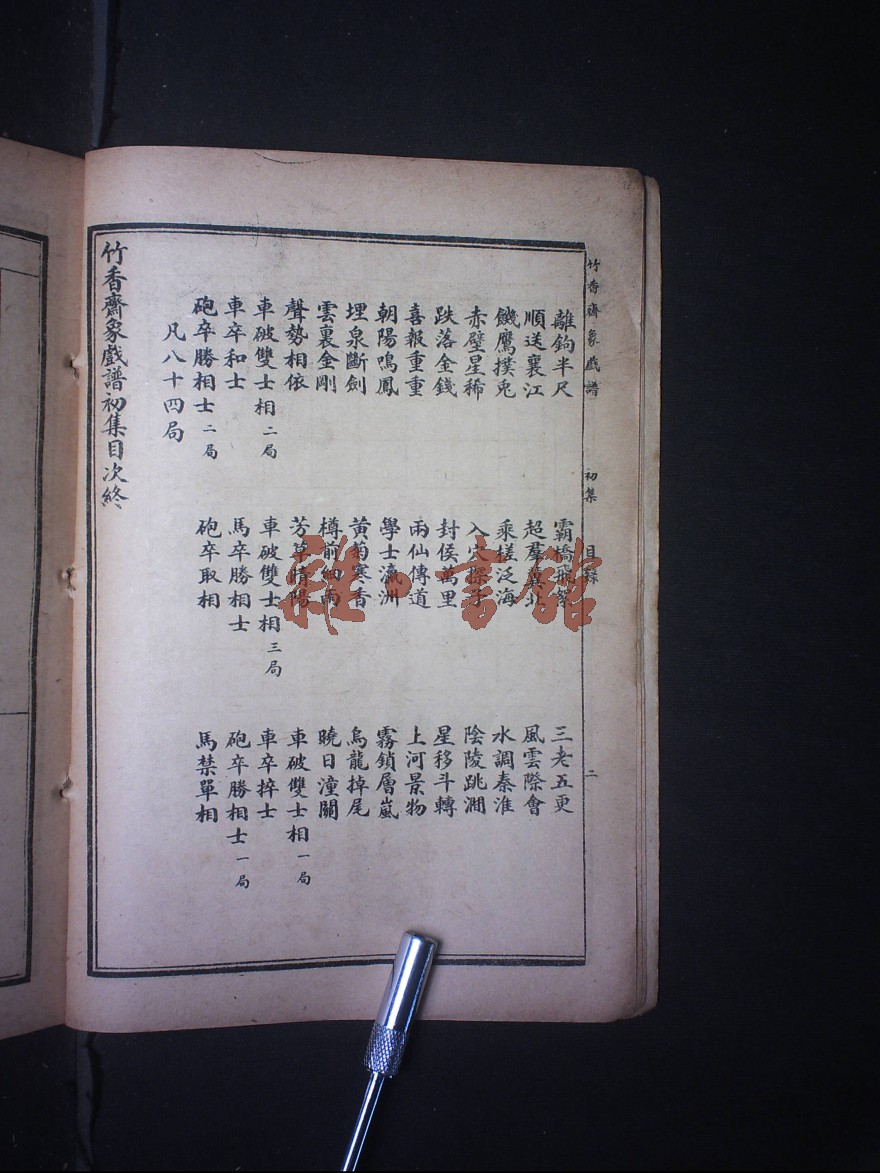 竹香齋象戲譜 初集 目錄 二
離鉤半尺 霸橋飛絮 三老五更
順送襄江 超羣冀北 風雲際會
饑鷹撲兎 乘槎泛海 水調秦淮
赤壁星稀 入穴探子 陰陵跳澗
跌落金錢 封侯萬里 星移斗轉
喜報重重 兩仙傳道 上河景物
朝陽鳴鳳 學士瀛洲 霧鎖層嵐
埋泉斷劍 黃菊寒香 烏龍掉尾
雲裏金剛 樽前細雨 曉日潼關
聲勢相依 芳草晴 車破雙士相一局
車破雙士相二局 車破雙士相三局 車卒捽士
車卒和士 馬卒勝相士 砲卒勝相士一局
砲卒勝相士二局 砲卒取相 馬禁單相
凡八十四局
竹香齋象戲譜初集目次終
雜·書館